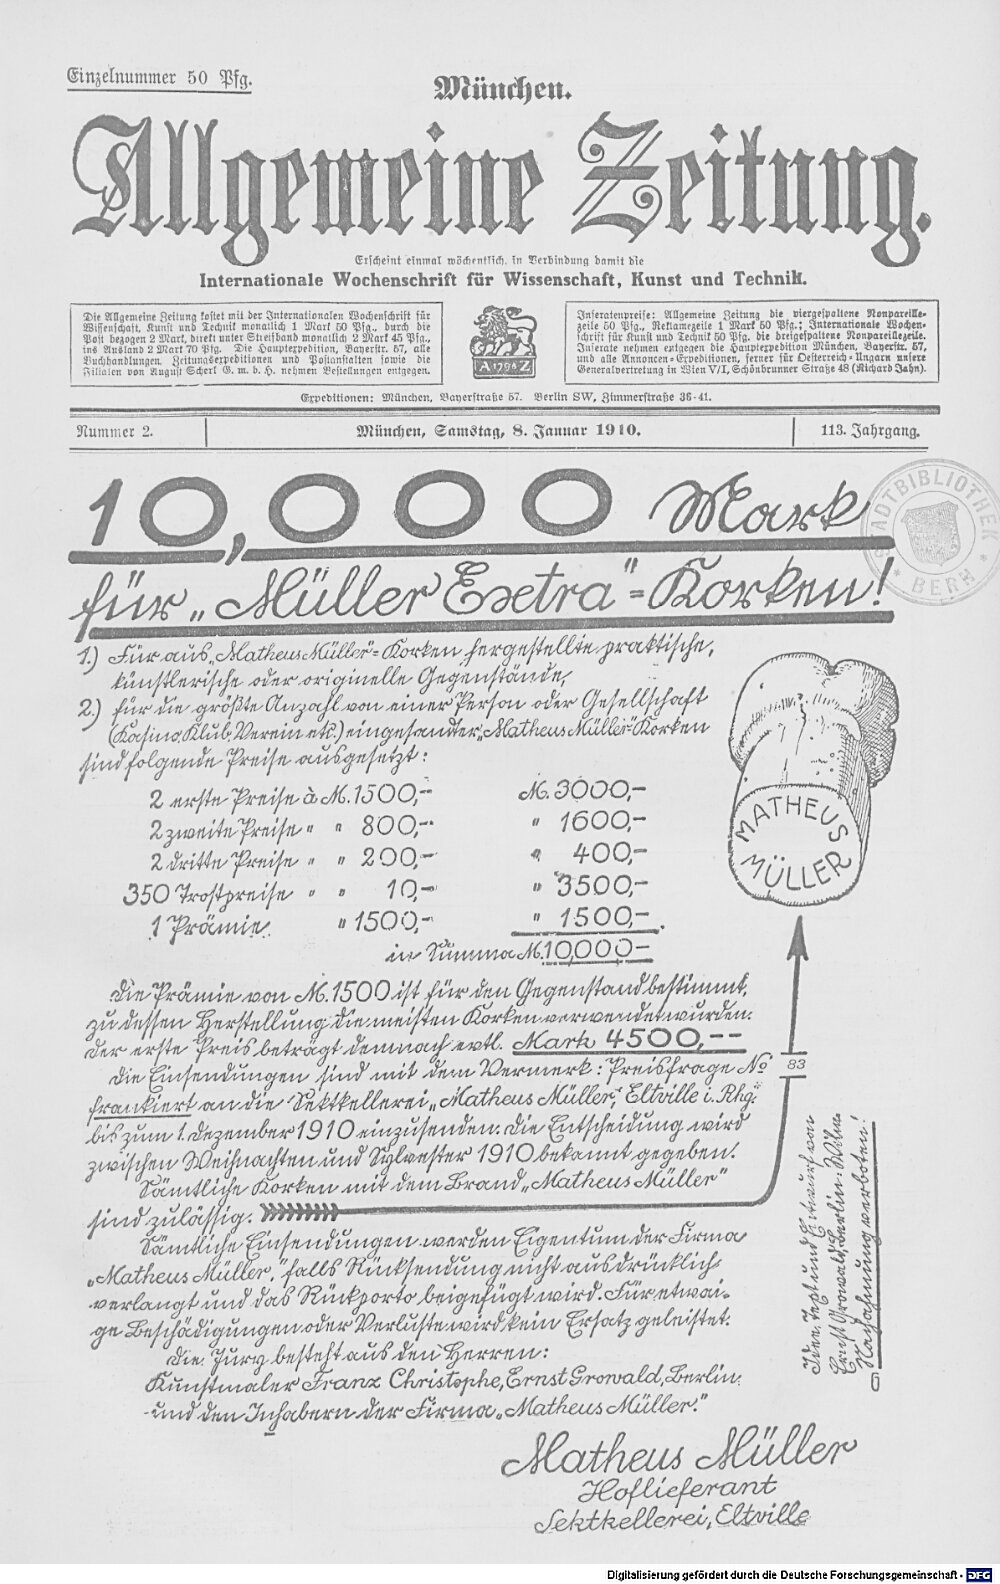 Einzelnummer 50 Pfg.
München.
Allgemeine Zeitung.
Erscheint einmal wöchentlich, in Verbindung damit die
Internationale Wochenschrift für Wissenschaft, Kunst und Technik.
Die Allgemeine Zeitung kostet mit der Internationalen Wochenschrift für
Wissenschaft, Kunst und Technik monatlich 1 Mark 50 Pfg., durch die
Post bezogen 2 Mark, direkt unter Streifband monatlich 2 Mark 45 Pfg.,
ins Ausland 2 Mark 70 Pfg. Die Hauptexpedition, Bayerstr. 57, alle
Buchhandlungen, Zeitungsexpeditionen und Postanstalten sowie die
Filialen von August Scherl G. m. b. H. nehmen Bestellungen entgegen.
A 1798 Z
Inseratenpreise: Allgemeine Zeitung die viergespaltene Nonpareille-
zeile 50 Pfg., Reklamezeile 1 Mark 50 Pfg.; Internationale Wochen-
schrift für Kunst und Technik 50 Pfg. die dreigespaltene Nonpareillezeile.
Inserate nehmen entgegen die Hauptexpedition München, Bayerstr. 57,
und alle Annoncen-Expeditionen, ferner für Oesterreich-Ungarn unsere
Generalvertretung in Wien V/I, Schönbrunner Straße 48 (Richard Jahn).
Expeditionen: München, Bayerstraße 57. Berlin SW, Zimmerstraße 36-41.
Nummer 2.
München, Samstag, 8. Januar 1910.
113. Jahrgang.
STADTBIBLIOTHEK
* BERN *
10,000 Mark
für „Müller Extra"-Korken!
1.) Für aus „Matheus Müller"-Korken hergestellte praktische,
künstlerische oder originelle Gegenstände,
2.) für die größte Anzahl von einer Person oder Gesellschaft
(Kasino, Klub, Verein etc.) eingesandter „Matheus Müller"-Korken
sind folgende Preise ausgesetzt:
2 erste Preise à M. 1500,- M. 3000,-
2 zweite Preise " " 800,- " 1600,-
2 dritte Preise " " 200,- " 400,-
350 Trostpreise " " 10,- " 3500,-
1 Prämie " 1500,- " 1500,-
in Summa M. 10,000-
MATHEUS
MÜLLER
Die Prämie von M. 1500 ist für den Gegenstand bestimmt,
zu dessen Herstellung die meisten Korken verwendet wurden.
Der erste Preis beträgt demnach evtl. Mark 4500,--
Die Einsendungen sind mit dem Vermerk: Preisfrage No 83
frankiert an die Sektkellerei „Matheus Müller," Eltville i. Rhg."
bis zum 1. Dezember 1910 einzusenden. Die Entscheidung wird
zwischen Weihnachten und Sylvester 1910 bekannt gegeben.
Sämtliche Korken mit dem Brand „Matheus Müller"
sind zulässig.
Sämtliche Einsendungen werden Eigentum der Firma
„Matheus Müller," falls Rücksendung nicht ausdrücklich
verlangt und das Rückporto beigefügt wird. Für etwai-
ge Beschädigungen oder Verluste wird kein Ersatz geleistet.
Die Jury besteht aus den Herren:
Kunstmaler Franz Christophe, Ernst Growald, Berlin
und den Inhabern der Firma „Matheus Müller."
Matheus Müller
Hoflieferant
Sektkellerei, Eltville
Idee, Text und Entwurf von
Ernst Growald, Berlin-Wilm.
Nachahmung verboten!
Digitalisierung gefördert durch die Deutsche Forschungsgemeinschaft - DFG